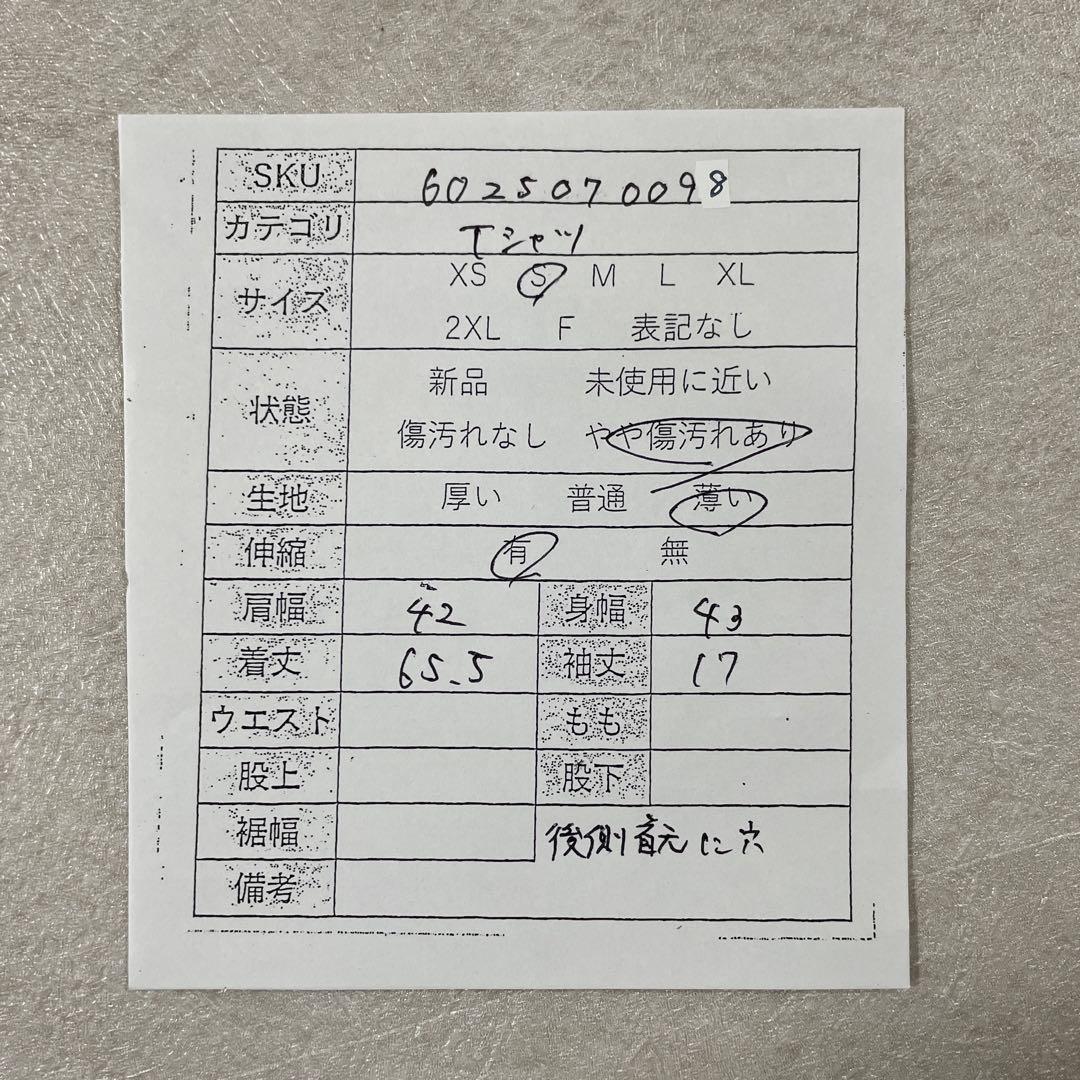 SKU 6025070098
カテゴリ Tシャツ
サイズ XS S M L XL
2XL F 表記なし
状態 新品 未使用に近い
傷汚れなし やや傷汚れあり
生地 厚い 普通 薄い
伸縮 有 無
肩幅 42 身幅 43
着丈 65.5 袖丈 17
ウエスト もも
股上 股下
裾幅 後側首元に穴
備考